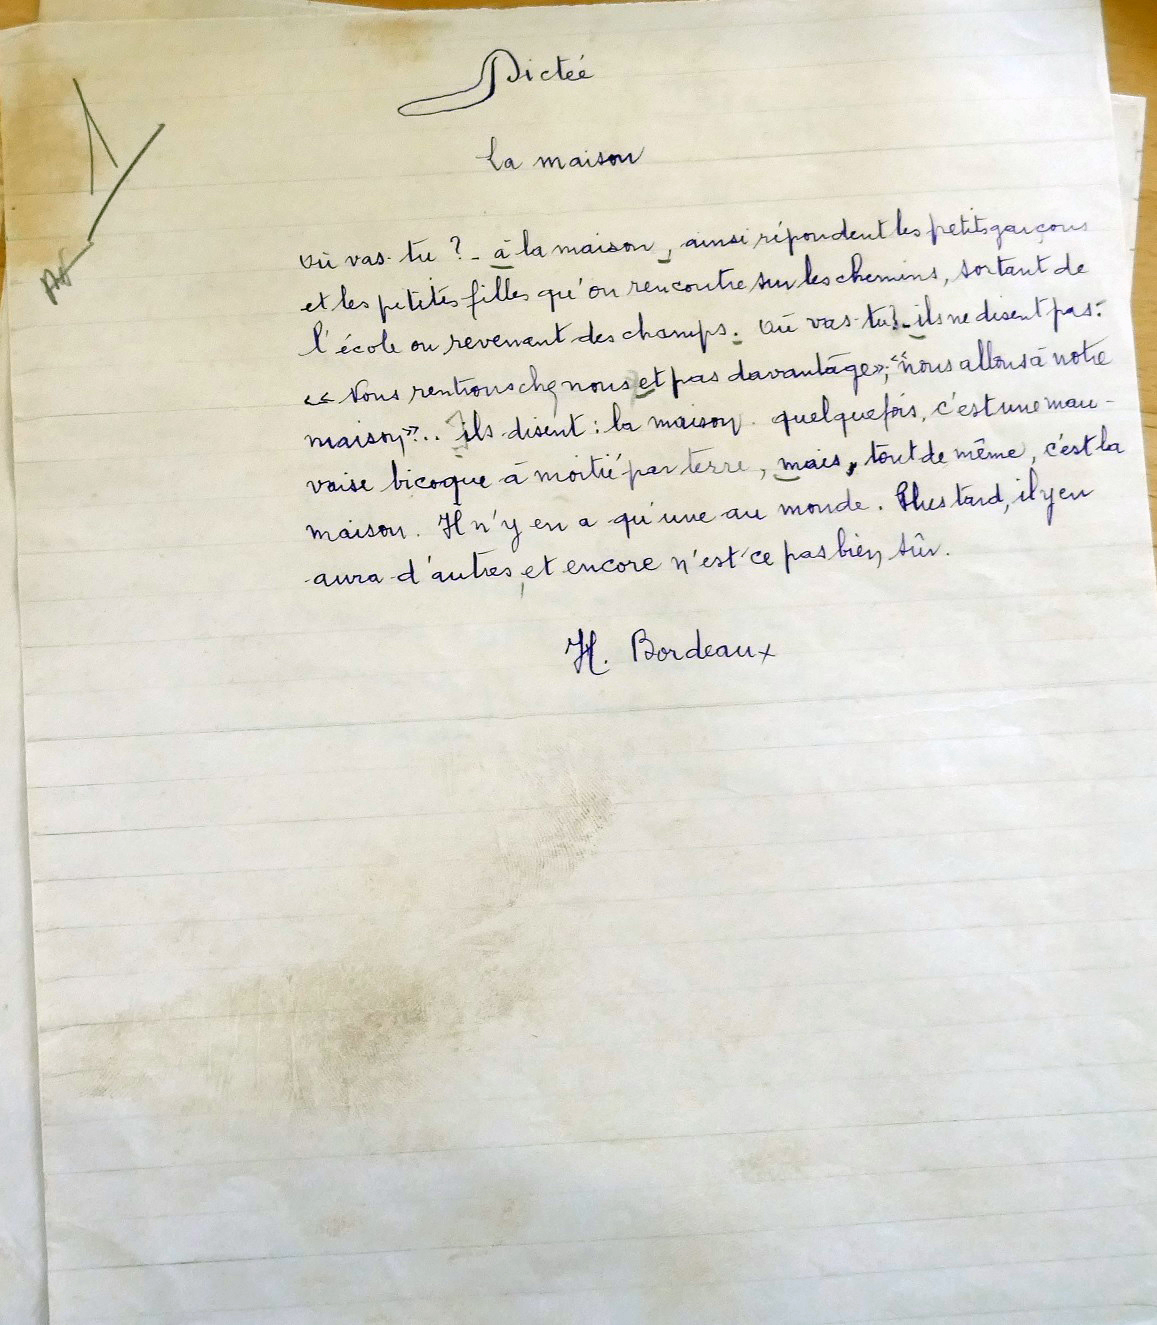 Dictée
La maison
Où vas-tu ? - à la maison, ainsi répondent les petits garçons
et les petites filles qu'on rencontre sur les chemins, sortant de
l'école ou revenant des champs. Où vas-tu? - ils ne disent pas:
«Nous rentrons chez nous et pas davantage», "nous allons à notre
maison".. Ils disent : la maison. quelquefois, c'est une mau-
vaise bicoque à moitié par terre, mais, tout de même, c'est la
maison. Il n'y en a qu'une au monde. Plus tard, il y en
aura d'autres, et encore n'est-ce pas bien sûr.
H. Bordeaux